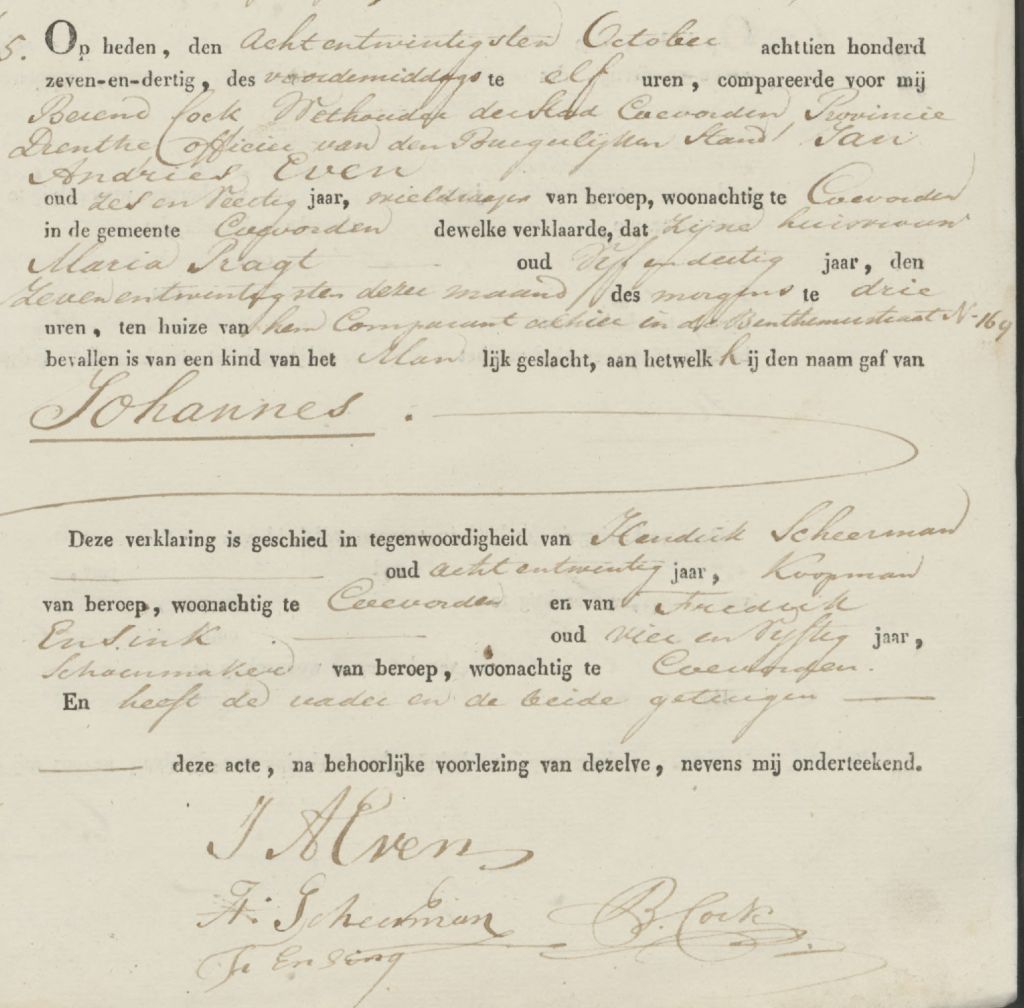 5. Op heden, den Acht entwintigsten October achttien honderd
zeven-en-dertig, des voordemiddags te elf uren, compareerde voor mij
Berend Cock Wethouder der Stad Coevorden, Provincie
Drenthe, Officier van den Burgerlijken Stand, Jan
Andries Even
oud zes en Veertig jaar, wieldraajer van beroep, woonachtig te Coevorden
in de gemeente Coevorden dewelke verklaarde, dat zijne huisvrouw
Maria Pragt oud Vijf en dertig jaar, den
Zevenentwintigsten dezer maand des morgens te drie
uren, ten huize van hem Comparant alhier in de Benthemerstraat N. 169
bevallen is van een kind van het Man lijk geslacht, aan hetwelk hij den naam gaf van
Johannes.
Deze verklaring is geschied in tegenwoordigheid van Hendrik Scheerman
oud acht entwintig jaar, Koopman
van beroep, woonachtig te Coevorden en van Fredrik
Ensink oud vier en Vijftig jaar,
Schoenmaker van beroep, woonachtig te Coevorden.
En heeft de vader en de beide getuigen
deze acte, na behoorlijke voorlezing van dezelve, nevens mij onderteekend.
J A Even
H. Scheerman B. Cock
F Ensing